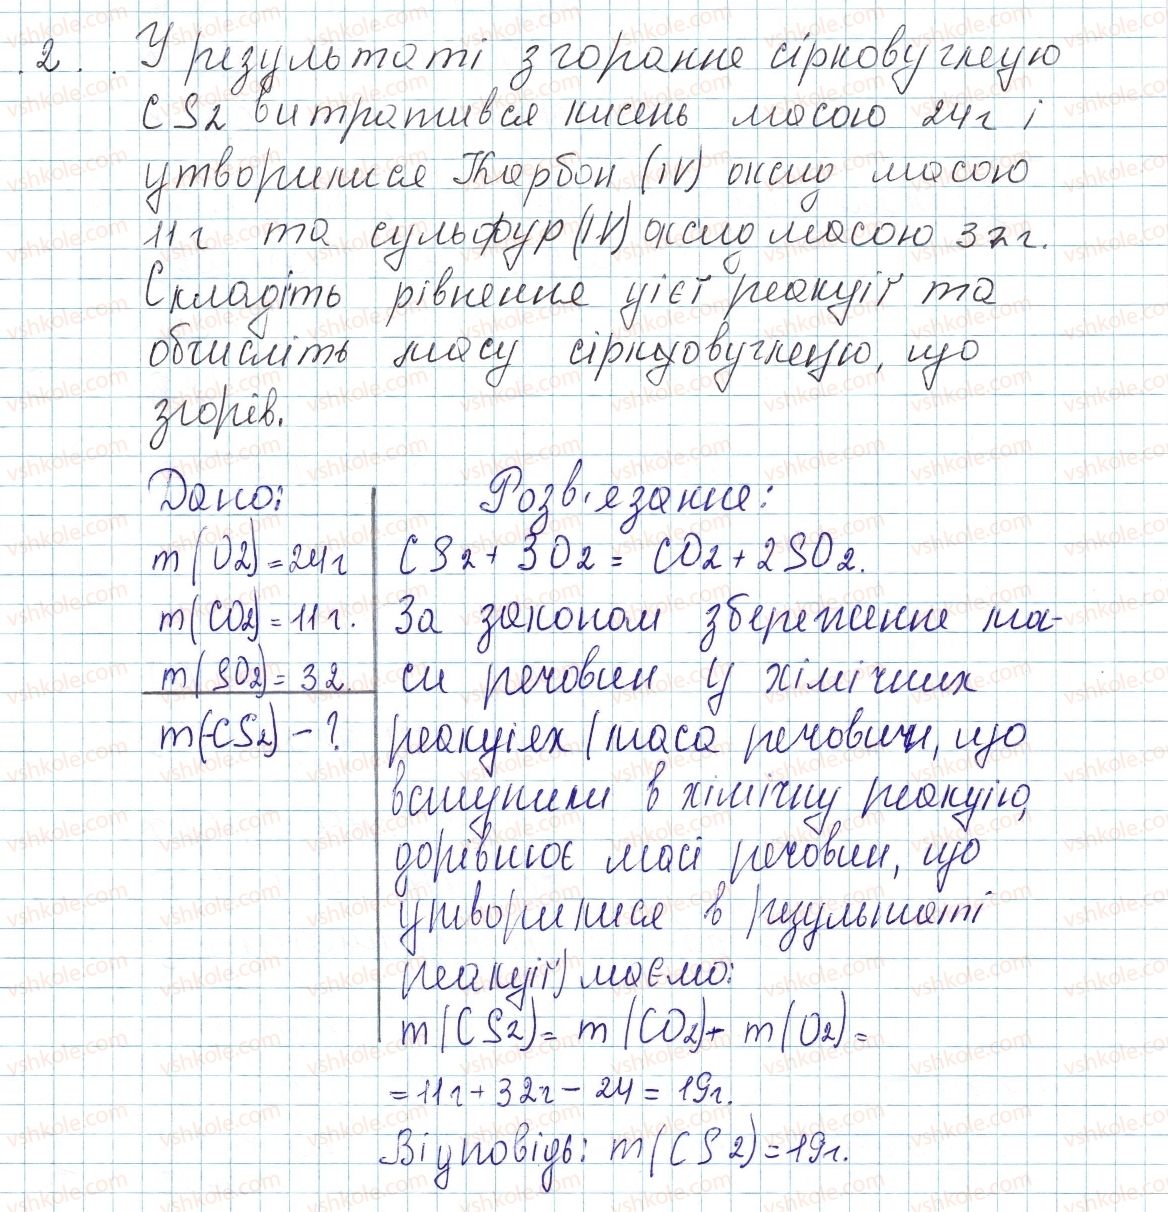 2. У результаті згорання сірковуглецю
CS2 витратився кисень масою 24г і
утворилися Карбон (IV) оксид масою
11г та сульфур (IV) оксид масою 32г.
Складіть рівнення цієї реакції та
обчисліть масу сірцовуглецю, що
згорів.
Дано:
m(O2)=24г
m(CO2)=11г.
m(SO2)=32.
m(CS2)-?
Розв'язання:
CS2+3O2=CO2+2SO2.
За законом збереження ма-
си речовин у хімічних
реакціях (маса речовин, що
вступили в хімічну реакцію,
дорівнює масі речовин, що
утворилися в результаті
реакції) маємо:
m(CS2)=m(CO2)+m(O2)=
=11г+32г-24=19г.
Відповідь: m(CS2)=19г.
vshkole.com